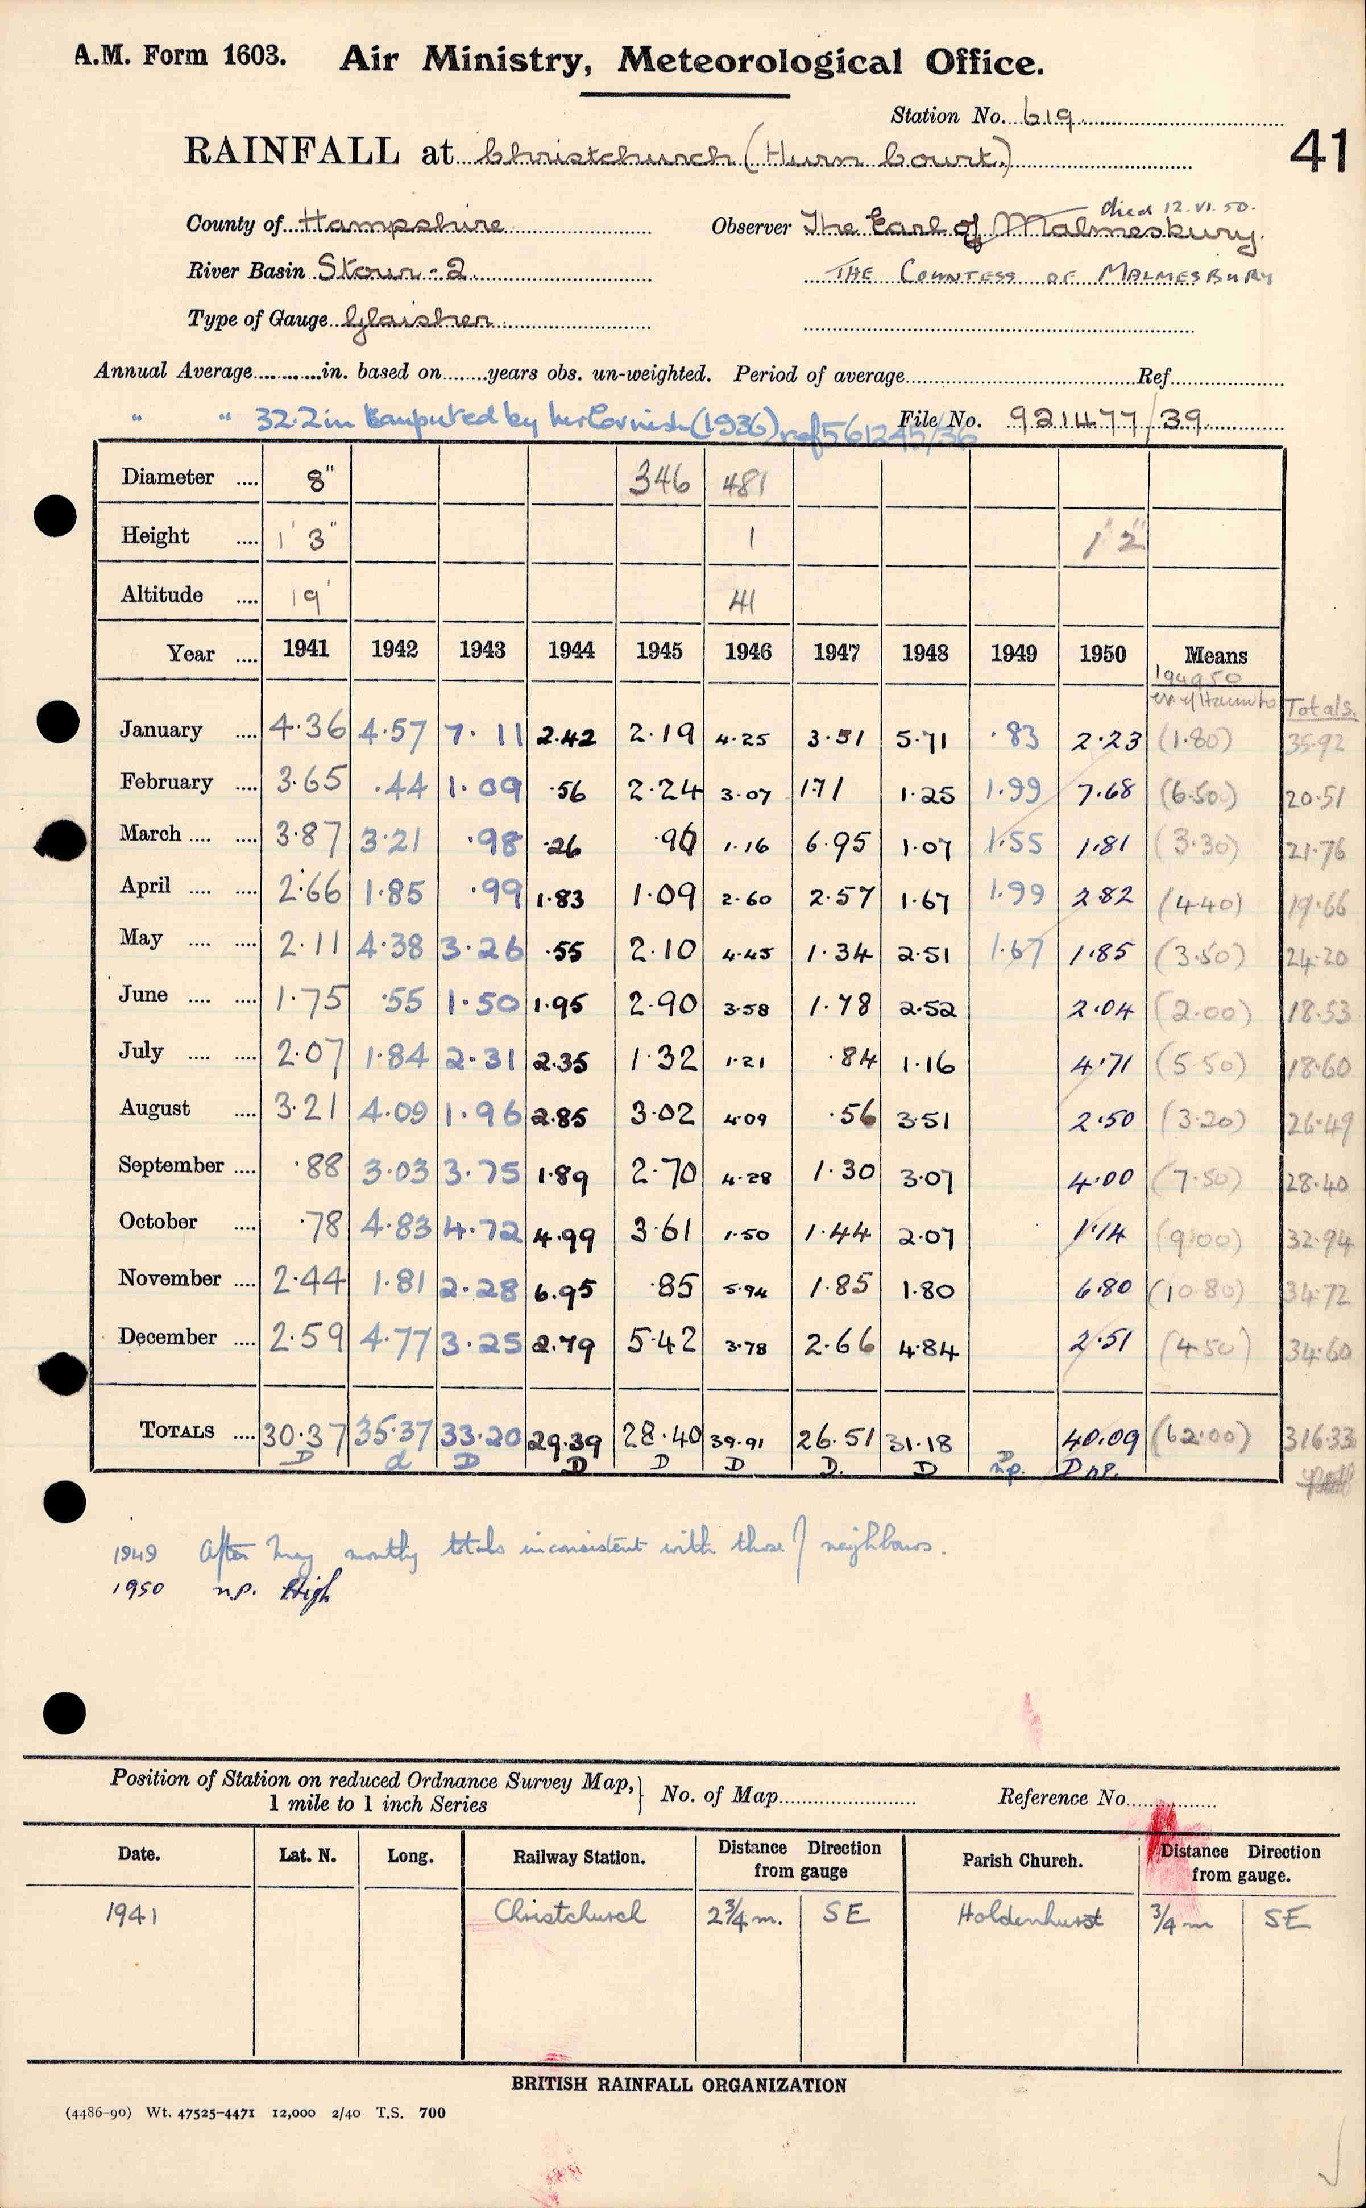 A.M. Form 1603. Air Ministry, Meteorological Office.
Station No. 619
41
RAINFALL at Christchurch (Hurn Court.)
died 12.VI.50.
County of Hampshire Observer The Earl of Malmesbury.
River Basin Stour-2 THE COUNTESS OF MALMESBURY
Type of Gauge Glaisher
Annual Average in. based on years obs. un-weighted. Period of average Ref
" " 32.2in computed by Mr Cornish (1936) ref 561245/36 File No. 921477/39
Diameter 8" 346 481
Height 1' 3" 1 1' 2"
Altitude 19' 41
Year 1941 1942 1943 1944 1945 1946 1947 1948 1949 1950 Means
194950
Totals.
January 4.36 4.57 7.11 2.42 2.19 4.25 3.51 5.71 .83 2.23 (1.80) 35.92
February 3.65 .44 1.09 .56 2.24 3.07 1.71 1.25 1.99 7.68 (6.50) 20.51
March 3.87 3.21 .98 .26 .96 1.16 6.95 1.07 1.55 1.81 (3.30) 21.76
April 2.66 1.85 .99 1.83 1.09 2.60 2.57 1.67 1.99 2.82 (4.40) 19.66
May 2.11 4.38 3.26 .55 2.10 4.45 1.34 2.51 1.67 1.85 (3.50) 24.20
June 1.75 .55 1.50 1.95 2.90 3.58 1.78 2.52 2.04 (2.00) 18.53
July 2.07 1.84 2.31 2.35 1.32 1.21 .84 1.16 4.71 (5.50) 18.60
August 3.21 4.09 1.96 2.85 3.02 4.09 .56 3.51 2.50 (3.20) 26.49
September .88 3.03 3.75 1.89 2.70 4.28 1.30 3.07 4.00 (7.50) 28.40
October .78 4.83 4.72 4.99 3.61 1.50 1.44 2.07 1.14 (9.00) 32.94
November 2.44 1.81 2.28 6.95 .85 5.94 1.85 1.80 6.80 (10.80) 34.72
December 2.59 4.77 3.25 2.79 5.42 3.78 2.66 4.84 2.51 (4.50) 34.60
TOTALS 30.37 35.37 33.20 29.39 28.40 39.91 26.51 31.18 40.09 (62.00) 316.33
D d D D D D D. D D n.p. D np.
1949 After May monthly totals inconsistent with those of neighbours.
1950 n.p. High
Position of Station on reduced Ordnance Survey Map, 1 mile to 1 inch Series } No. of Map Reference No.
Date. Lat. N. Long. Railway Station. Distance Direction from gauge Parish Church. Distance Direction from gauge.
1941 Christchurch 2¾ m. SE Holdenhurst ¾ m SE
BRITISH RAINFALL ORGANIZATION
(4486-90) Wt. 47525-4471 12,000 2/40 T.S. 700